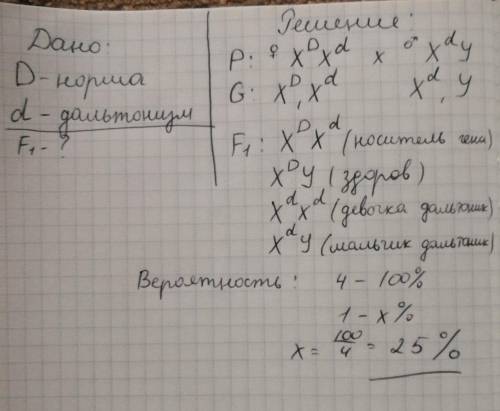 Дано:
D - норма
d - дальтонизм
F₁ - ?
Решение:
P: ♀ XᴰXᵈ x ♂ XᵈY
G: Xᴰ, Xᵈ Xᵈ, Y
F₁: XᴰXᵈ (носитель гена)
XᴰY (здоров)
XᵈXᵈ (девочка дальтоник)
XᵈY (мальчик дальтоник)
Вероятность: 4 - 100%
1 - x%
x = 100/4 = 25%